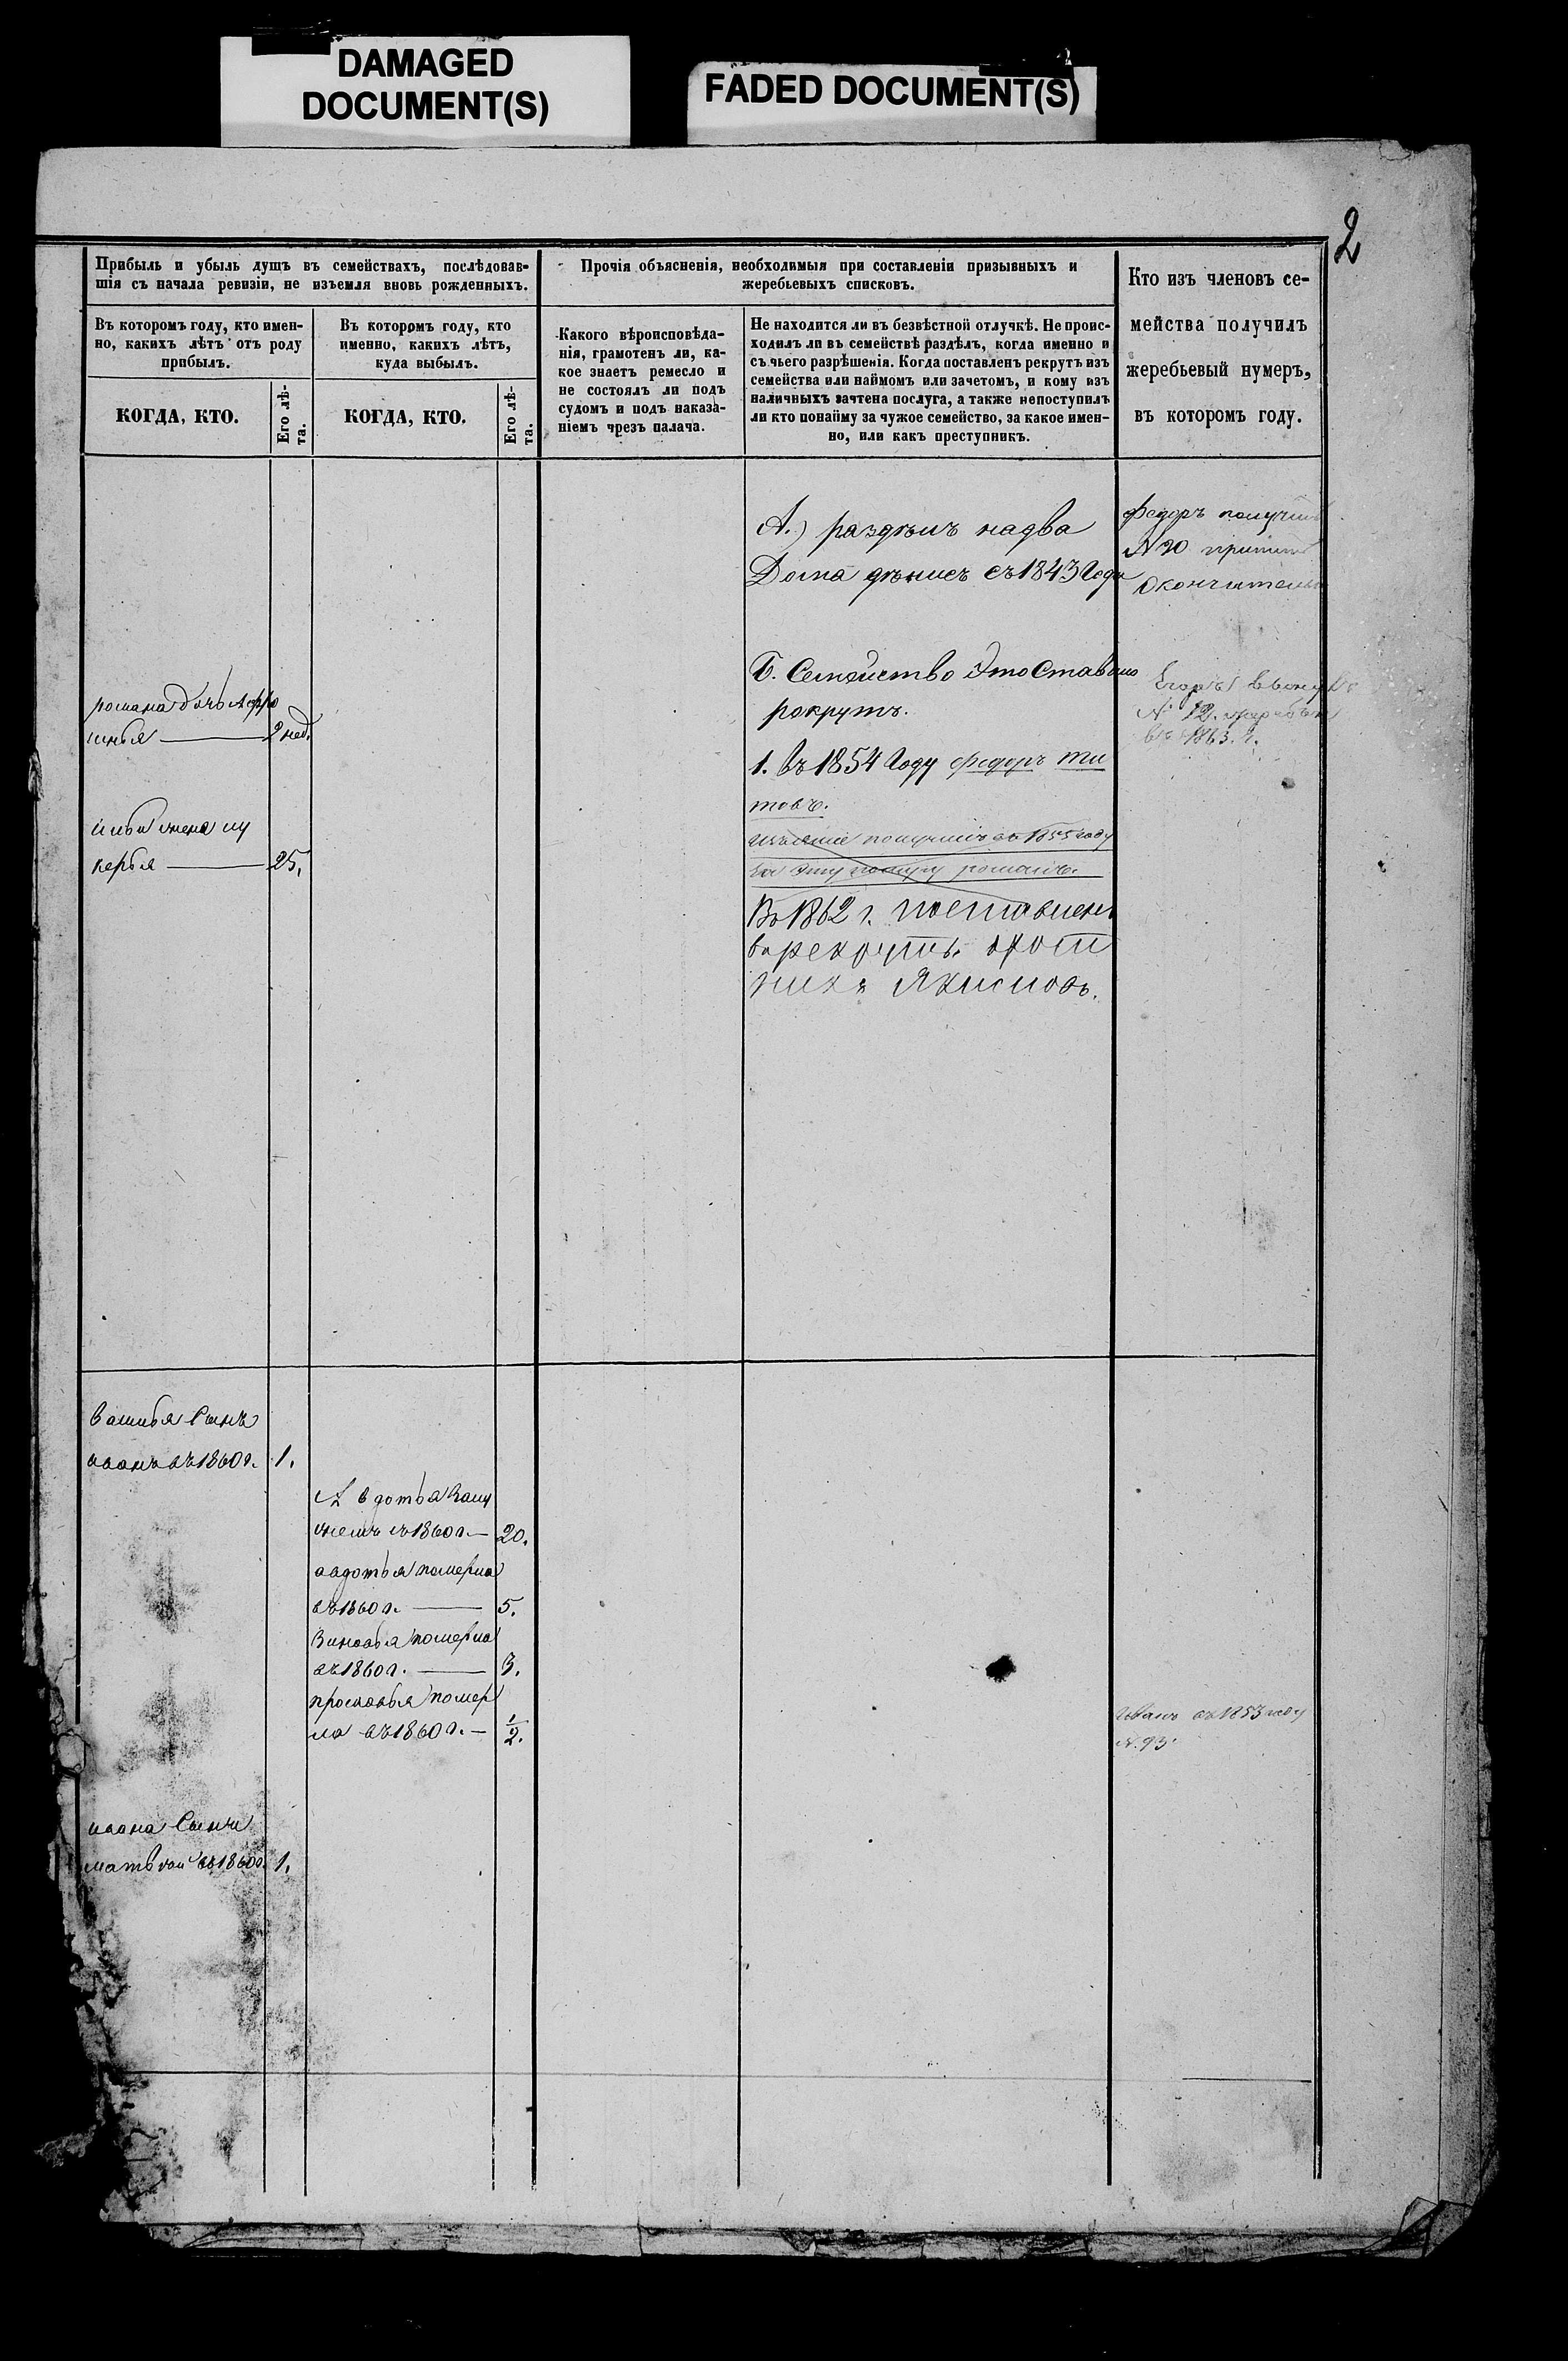 DAMAGED
DOCUMENT(S)
FADED DOCUMENT(S)
2
Прибыль и убыль душъ въ семействахъ, послѣдовав-
шія съ начала ревизіи, не изъемля вновь рожденныхъ.
Прочія объясненія, необходимыя при составленіи призывныхъ и
жеребьевыхъ списковъ.
Кто изъ членовъ се-
мейства получилъ
жеребьевый нумеръ,
въ которомъ году.
Въ которомъ году, кто имен-
но, какихъ лѣтъ отъ роду
прибылъ.
Въ которомъ году, кто
именно, какихъ лѣтъ,
куда выбылъ.
Какого вѣроисповѣда-
нія, грамотенъ ли, ка-
кое знаетъ ремесло и
не состоялъ ли подъ
судомъ и подъ наказа-
ніемъ чрезъ палача.
Не находится ли въ безвѣстной отлучкѣ. Не проис-
ходилъ ли въ семействѣ раздѣлъ, когда именно и
съ чьего разрѣшенія. Когда поставленъ рекрутъ изъ
семейства или наймомъ или зачетомъ, и кому изъ
наличныхъ зачтена послуга, а также непоступилъ
ли кто понайму за чужое семейство, за какое имен-
но, или какъ преступникъ.
КОГДА, КТО.
Его лѣ-
та.
КОГДА, КТО.
Его лѣ-
та.
А.) раздѣлъ надва
Дома съ 1843 Года
Федоръ получил
N 20
Окончательн
Б. Семейство Это Ставило
рекрутъ.
1. въ 1854 Году Федоръ Ти
товъ.
получилъ въ 1855 году
за эту романъ.
Въ 1862 г. поставленъ
в рекруты охот
никъ
Егоръ
N 12.
въ 1863. г.
романа дочь Афро
синья 2 нед.
жена лу
керья 25.
василья Сынъ
иванъ въ 1860 г. 1.
Авдотья Заму
жемъ въ 1860 г. 20.
авдотья померла
въ 1860 г. 5.
Зиновья померла
въ 1860 г. 3.
просковья помер
ла въ 1860 г. 1/2.
Иванъ въ 1853 году
N. 93
ивана Сынъ
матвѣй въ 1860 г. 1.